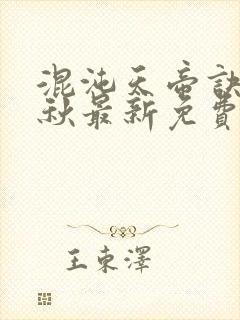 混沌天帝訣
秋最新免費
王東澤